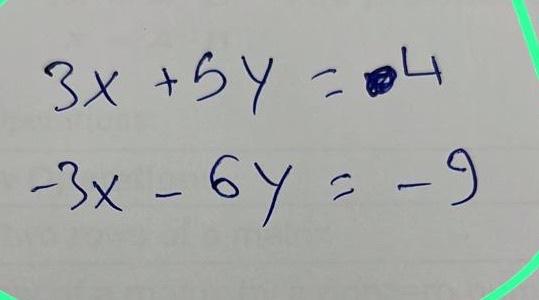 3x + 5y = 4
-3x - 6y = -9